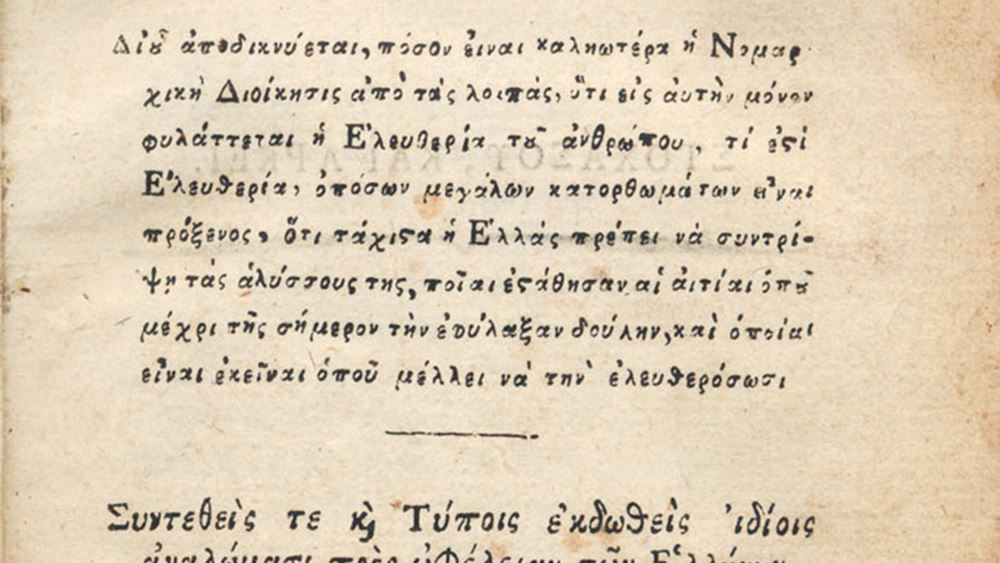 Δἰȣ̃ ἀποδικνύεται, πόσον εἶναι καλλιωτέρα ἡ Νομαρ-
χικὴ Διοίκησις ἀπὸ τὰς λοιπὰς, ὅτι εἰς ἀυτὴν μόνον
φυλάττεται ἡ Ἐλευθερία τȣ̃ ἀνθρώπου, τί ἐϛὶ
Ἐλευθερία, ὁπόσων μεγάλων κατορθωμάτων εἶναι
πρόξενος, ὅτι τάχιϛα ἡ Ἑλλὰς πρέπει νὰ συντρί-
ψῃ τὰς ἁλύσσους της, ποῖαι ἐϛάθησαν αἱ ἀιτίαι ὁπȣ̃
μέχρι τῆς σήμερον τὴν ἐφύλαξαν δούλην, καὶ ὁποῖαι
εἶναι ἐκεῖναι ὁποῦ μέλλει νὰ τὴν ἐλευθερόσωσι
Συντεθεὶς τε ϗ Τύποις ἐκδωθεὶς ἰδίοις
ἀναλώμασι πρὸς ὠφέλειαν τῶν Ἑλλήνων